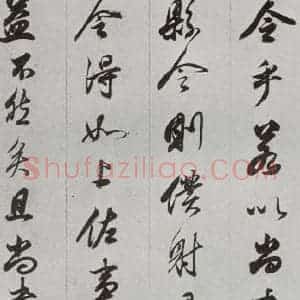 令乎若以尚書
縣令則僕射
令得如上佐事
益不能矣且尚書
Shufaziliao.com